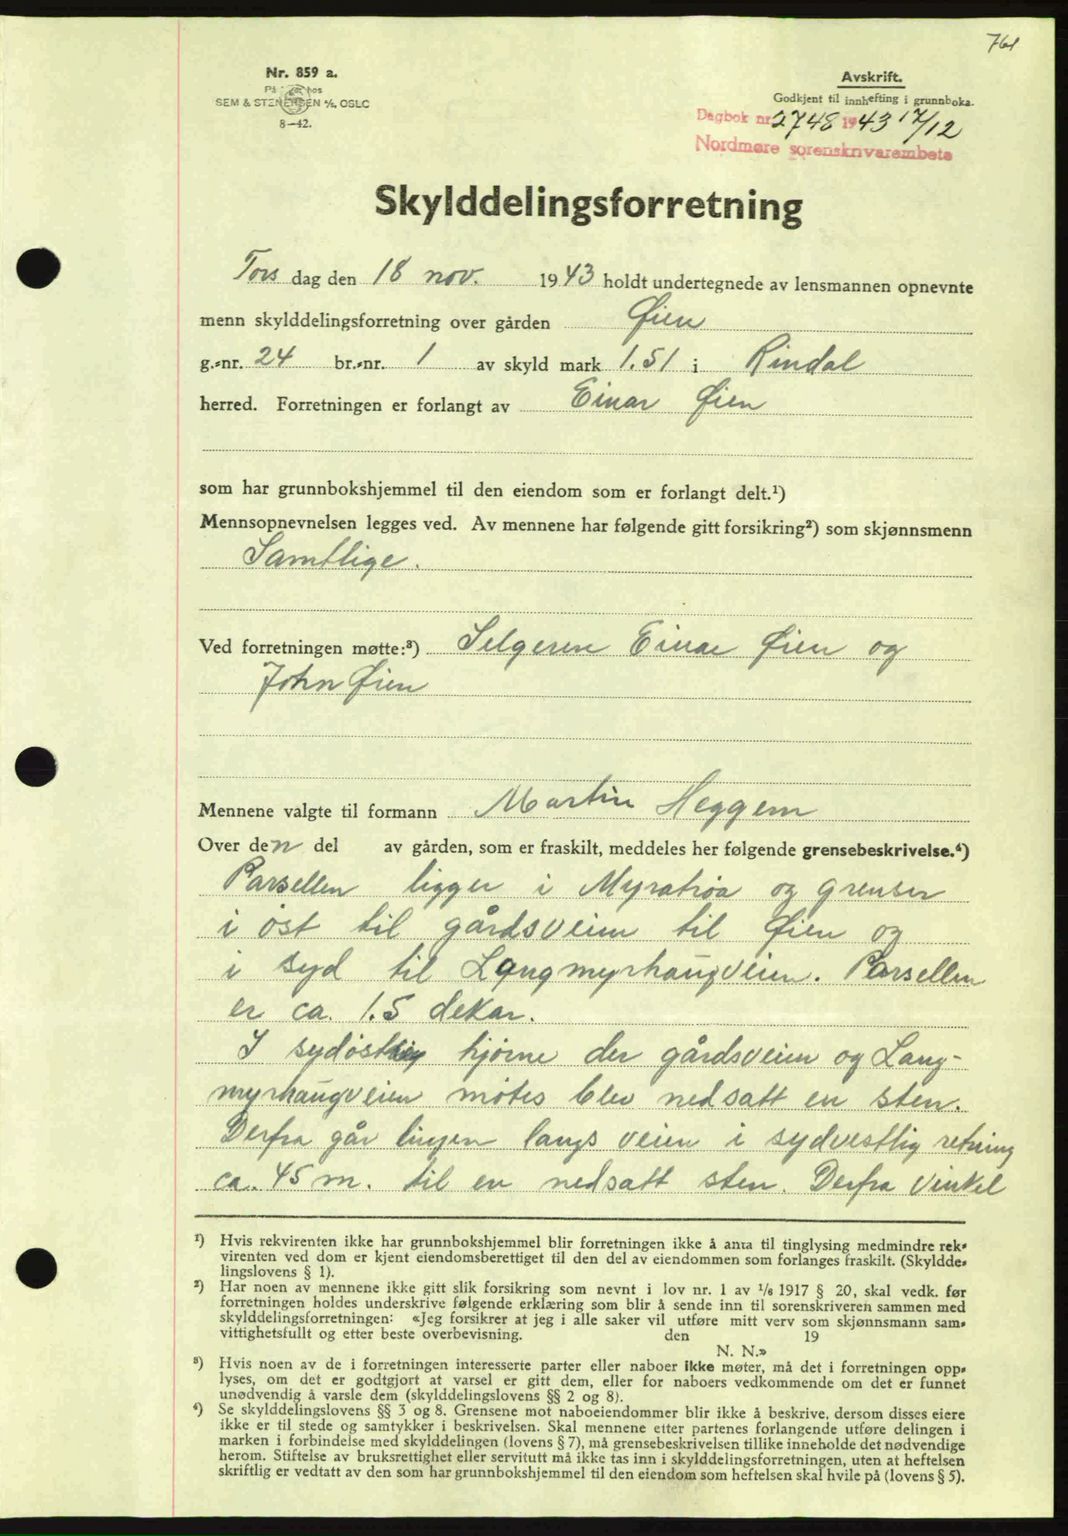 761
Nr. 859 a.
SEM & STENERSEN A/S, OSLO
8—42.
Avskrift.
Godkjent til innhefting i grunnboka.
Dagbok nr. 2748 1943 17/12
Nordmøre sorenskrivarembete
Skylddelingsforretning
Tors dag den 18 nov. 1943 holdt undertegnede av lensmannen opnevnte
menn skylddelingsforretning over gården Øien
g.-nr. 24 br.-nr. 1 av skyld mark 1.51 i Rindal
herred. Forretningen er forlangt av Einar Øien
som har grunnbokshjemmel til den eiendom som er forlangt delt.¹)
Mennsopnevnelsen legges ved. Av mennene har følgende gitt forsikring²) som skjønnsmenn
Samtlige.
Ved forretningen møtte:³) Selgeren Einar Øien og
John Øien
Mennene valgte til formann Martin Heggem
Over den del av gården, som er fraskilt, meddeles her følgende grensebeskrivelse.⁴)
Parsellen ligger i Myratrøa og grenser
i øst til gårdsveien til Øien og
i syd til Langmyrhaugveien. Parsellen
er ca. 1.5 dekar.
I sydøstlig hjørne der gårdsveien og Lang-
myrhaugveien møtes blev nedsatt en sten.
Derfra går linjen langs veien i sydvestlig retning
ca. 45 m. til en nedsatt sten. Derfra vinkel
¹) Hvis rekvirenten ikke har grunnbokshjemmel blir forretningen ikke å anta til tinglysing medmindre rek-
virenten ved dom er kjent eiendomsberettiget til den del av eiendommen som forlanges fraskilt. (Skyldde-
lingslovens § 1).
²) Har noen av mennene ikke gitt slik forsikring som nevnt i lov nr. 1 av 1/6 1917 § 20, skal vedk. før
forretningen holdes underskrive følgende erklæring som blir å sende inn til sorenskriveren sammen med
skylddelingsforretningen: «Jeg forsikrer at jeg i alle saker vil utføre mitt verv som skjønnsmann sam-
vittighetsfullt og etter beste overbevisning. den 19
N. N.»
³) Hvis noen av de i forretningen interesserte parter eller naboer ikke møter, må det i forretningen opp-
lyses, om det er godtgjort at varsel er gitt dem, eller for naboers vedkommende om det er funnet
unødvendig å varsle dem (skylddelingslovens §§ 2 og 8).
⁴) Se skylddelingslovens §§ 3 og 8. Grensene mot naboeiendommer blir ikke å beskrive, dersom disses eiere
ikke er til stede og samtykker i beskrivelsen. Skal mennene etter partenes forlangende utføre delingen i
marken i forbindelse med skylddelingen (lovens § 7), må grensebeskrivelsen tillike inneholde det nødvendige
herom. Stiftelse av bruksrettighet eller servitutt må ikke tas inn i skylddelingsforretningen, uten at heftelsen
skriftlig er vedtatt av den som har grunnbokshjemmel til den eiendom som heftelsen skal hvile på (lovens § 5).